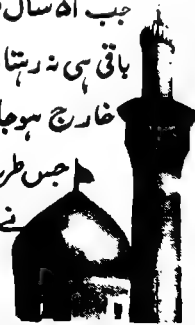 جب ۵۱ سال
باقی ہی نہ رہتا
خارج ہوجا
جس طر
نے